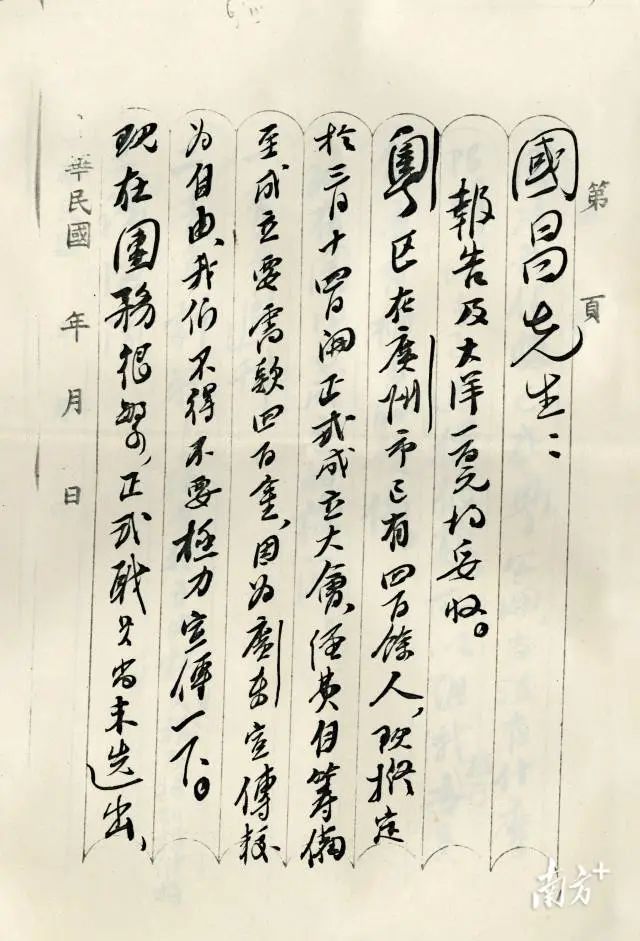 第 頁
國昌先生:
報告及大洋一百元均妥收。
粵区在廣州市已有四百餘人,现擬定
於三月十四日開正式成立大會,经费自筹備
至成立要需款四百,因为廣東宣傳較
为自由,我们不得不要極力宣傳一下。
现在團務很繁,正式职员尚未选出,
華民國 年 月 日
南方+